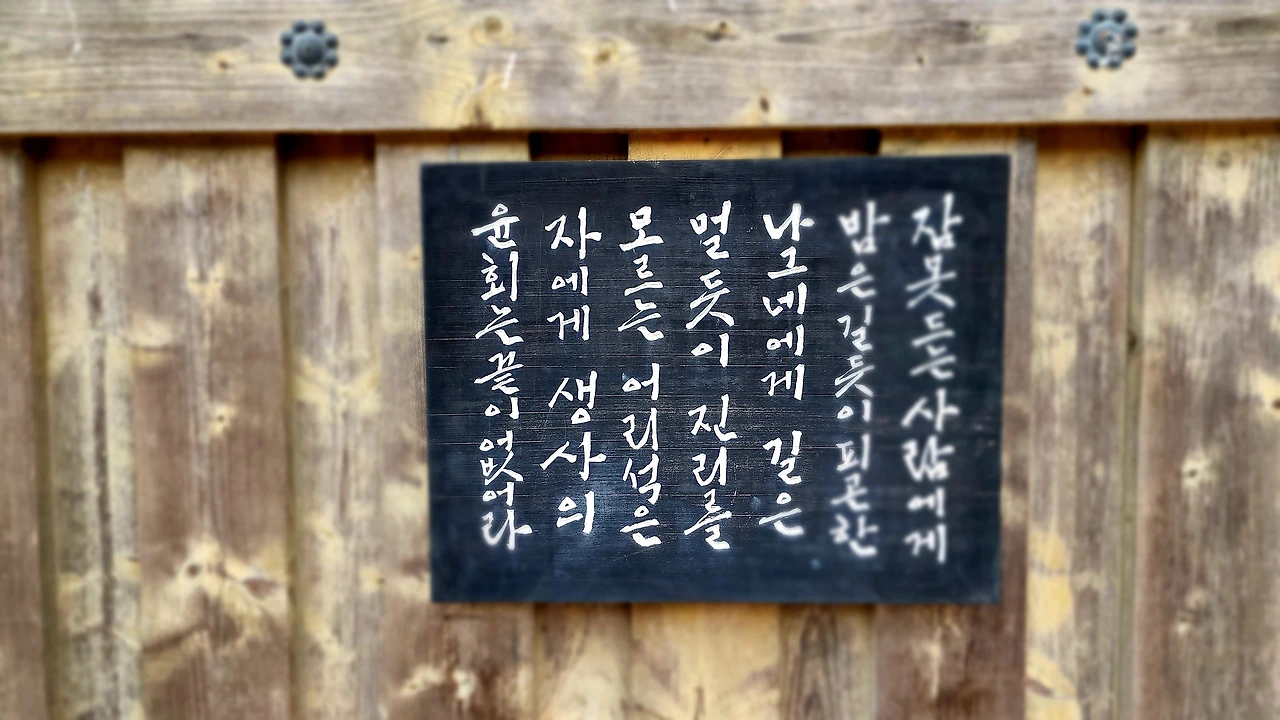 잠 못 드는 사람에게
밤은 길듯이 피곤한
나그네에게 길은
멀듯이 진리를
모르는 어리석은
자에게 생사의
윤회는 끝이 없어라